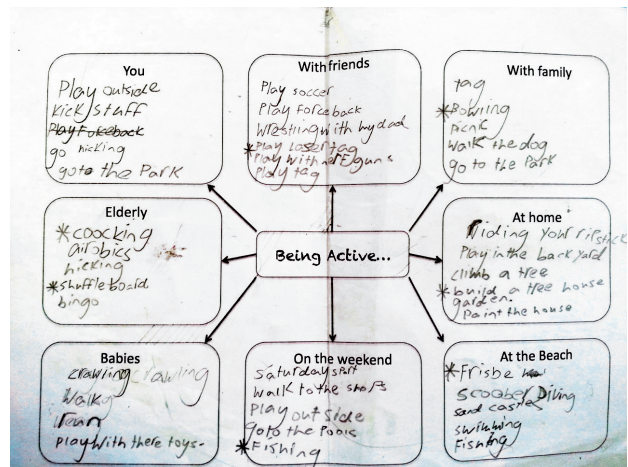 You
Play outside
Kick stuff
Play Foreback
go hicking
goto the Park
With friends
Play soccer
Play Forceback
Wrestling with my dad
*Play laser tag
Play with nerf guns
Play tag
With family
tag
*Bowling
Picnic
walk the dog
go to the Park
Elderly
*coocking
airobics
hicking
*shuffleboard
bingo
Being Active...
At home
riding your ripstick
Play in the back yard
climb a tree
*build a tree house
garden.
Paint the house
Babies
crawling crawling
Walky
Play with there toys-
On the weekend
Saturday sport
walk to the
Play out side
goto the Pools
*Fishing
At the Beach
*Frisbe
Scoober Diving
sand castles
swimming
Fishing